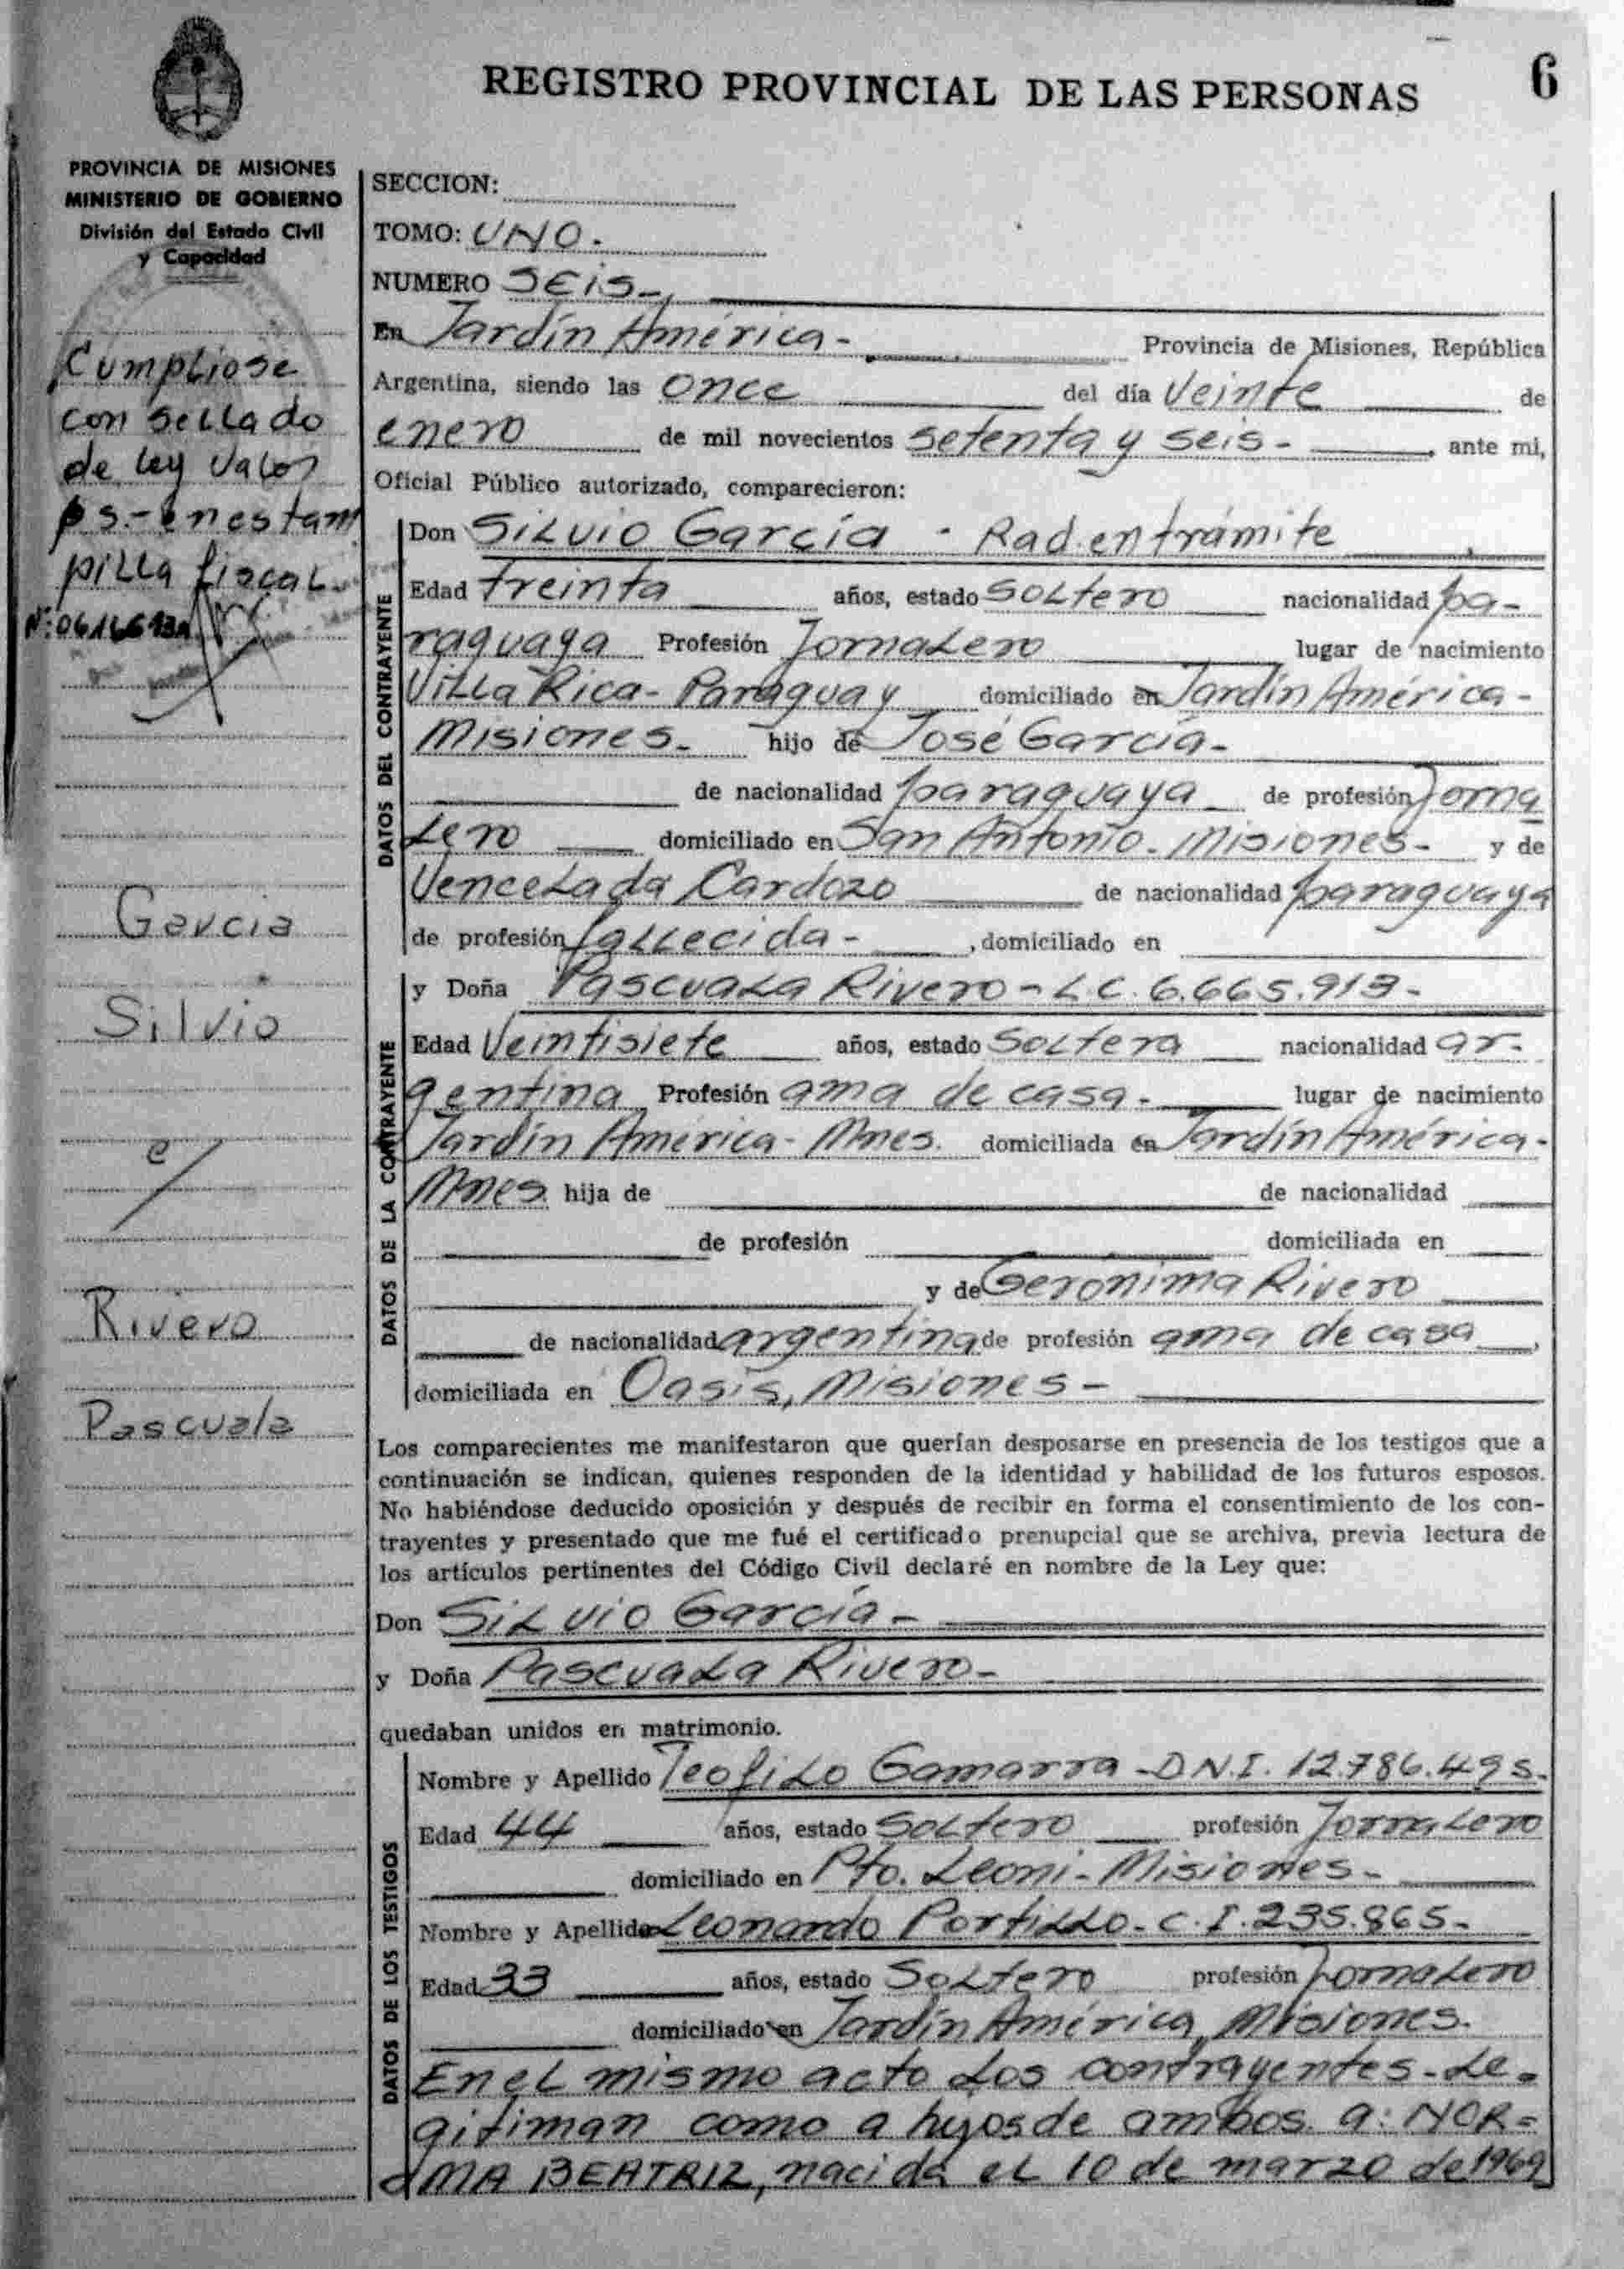 REGISTRO PROVINCIAL DE LAS PERSONAS
6
PROVINCIA DE MISIONES
MINISTERIO DE GOBIERNO
División del Estado Civil
y Capacidad
Cumpliose
con sellado
de ley valor
ps.- en estam
pilla fiscal.
García
Silvio
c/
Rivero
Pascuala
SECCION:
TOMO: UNO.
NUMERO SEIS-
En Jardín América- Provincia de Misiones, República
Argentina, siendo las once del día veinte de
enero de mil novecientos setenta y seis- ante mi,
Oficial Público autorizado, comparecieron:
DATOS DEL CONTRAYENTE
Don Silvio García - Rad. en trámite
Edad treinta años, estado soltero nacionalidad pa-
raguaya Profesión Jornalero lugar de nacimiento
Villa Rica- Paraguay domiciliado en Jardín América-
Misiones- hijo de José García-
de nacionalidad paraguaya de profesión Jorna
lero domiciliado en San Antonio- Misiones- y de
Vencelada Cardozo de nacionalidad paraguaya
de profesión fallecida- , domiciliado en
DATOS DE LA CONTRAYENTE
y Doña Pascuala Rivero- L.C. 6.665.913-
Edad Veintisiete años, estado soltera nacionalidad ar-
gentina Profesión ama de casa- lugar de nacimiento
Jardín América- Mnes. domiciliada en Jardín América-
Mnes hija de de nacionalidad
de profesión domiciliada en
y de Gerónima Rivero
de nacionalidad argentina de profesión ama de casa ,
domiciliada en Oasis, Misiones-
Los comparecientes me manifestaron que querían desposarse en presencia de los testigos que a
continuación se indican, quienes responden de la identidad y habilidad de los futuros esposos.
No habiéndose deducido oposición y después de recibir en forma el consentimiento de los con-
trayentes y presentado que me fué el certificado prenupcial que se archiva, previa lectura de
los artículos pertinentes del Código Civil declaré en nombre de la Ley que:
Don Silvio García-
y Doña Pascuala Rivero-
quedaban unidos en matrimonio.
DATOS DE LOS TESTIGOS
Nombre y Apellido Teofilo Gamarra - D.N.I. 12.786.495-
Edad 44 años, estado soltero profesión Jornalero
domiciliado en Pto. Leoni- Misiones-
Nombre y Apellido Leonardo Portillo- C.I. 235.865-
Edad 33 años, estado soltero profesión Jornalero
domiciliado en Jardín América, Misiones.
En el mismo acto los contrayentes- le-
gitiman como a hijos de ambos a: NOR-
MA BEATRIZ, nacida el 10 de marzo de 1969